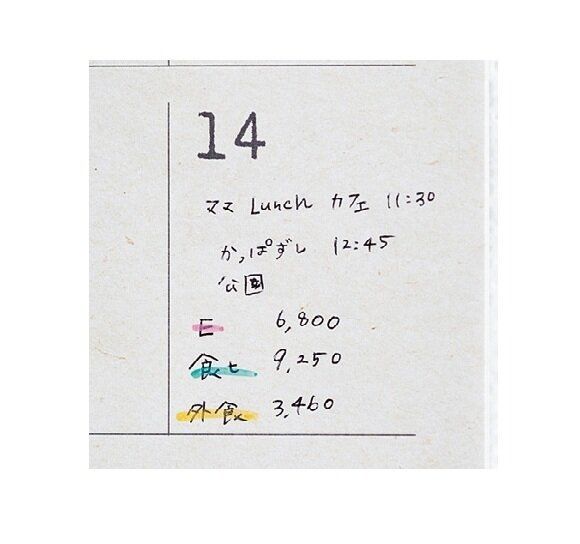 14
ママ Lunch カフェ 11:30
かっぱずし 12:45
公園
E 6,800
食ヒ 9,250
外食 3,460